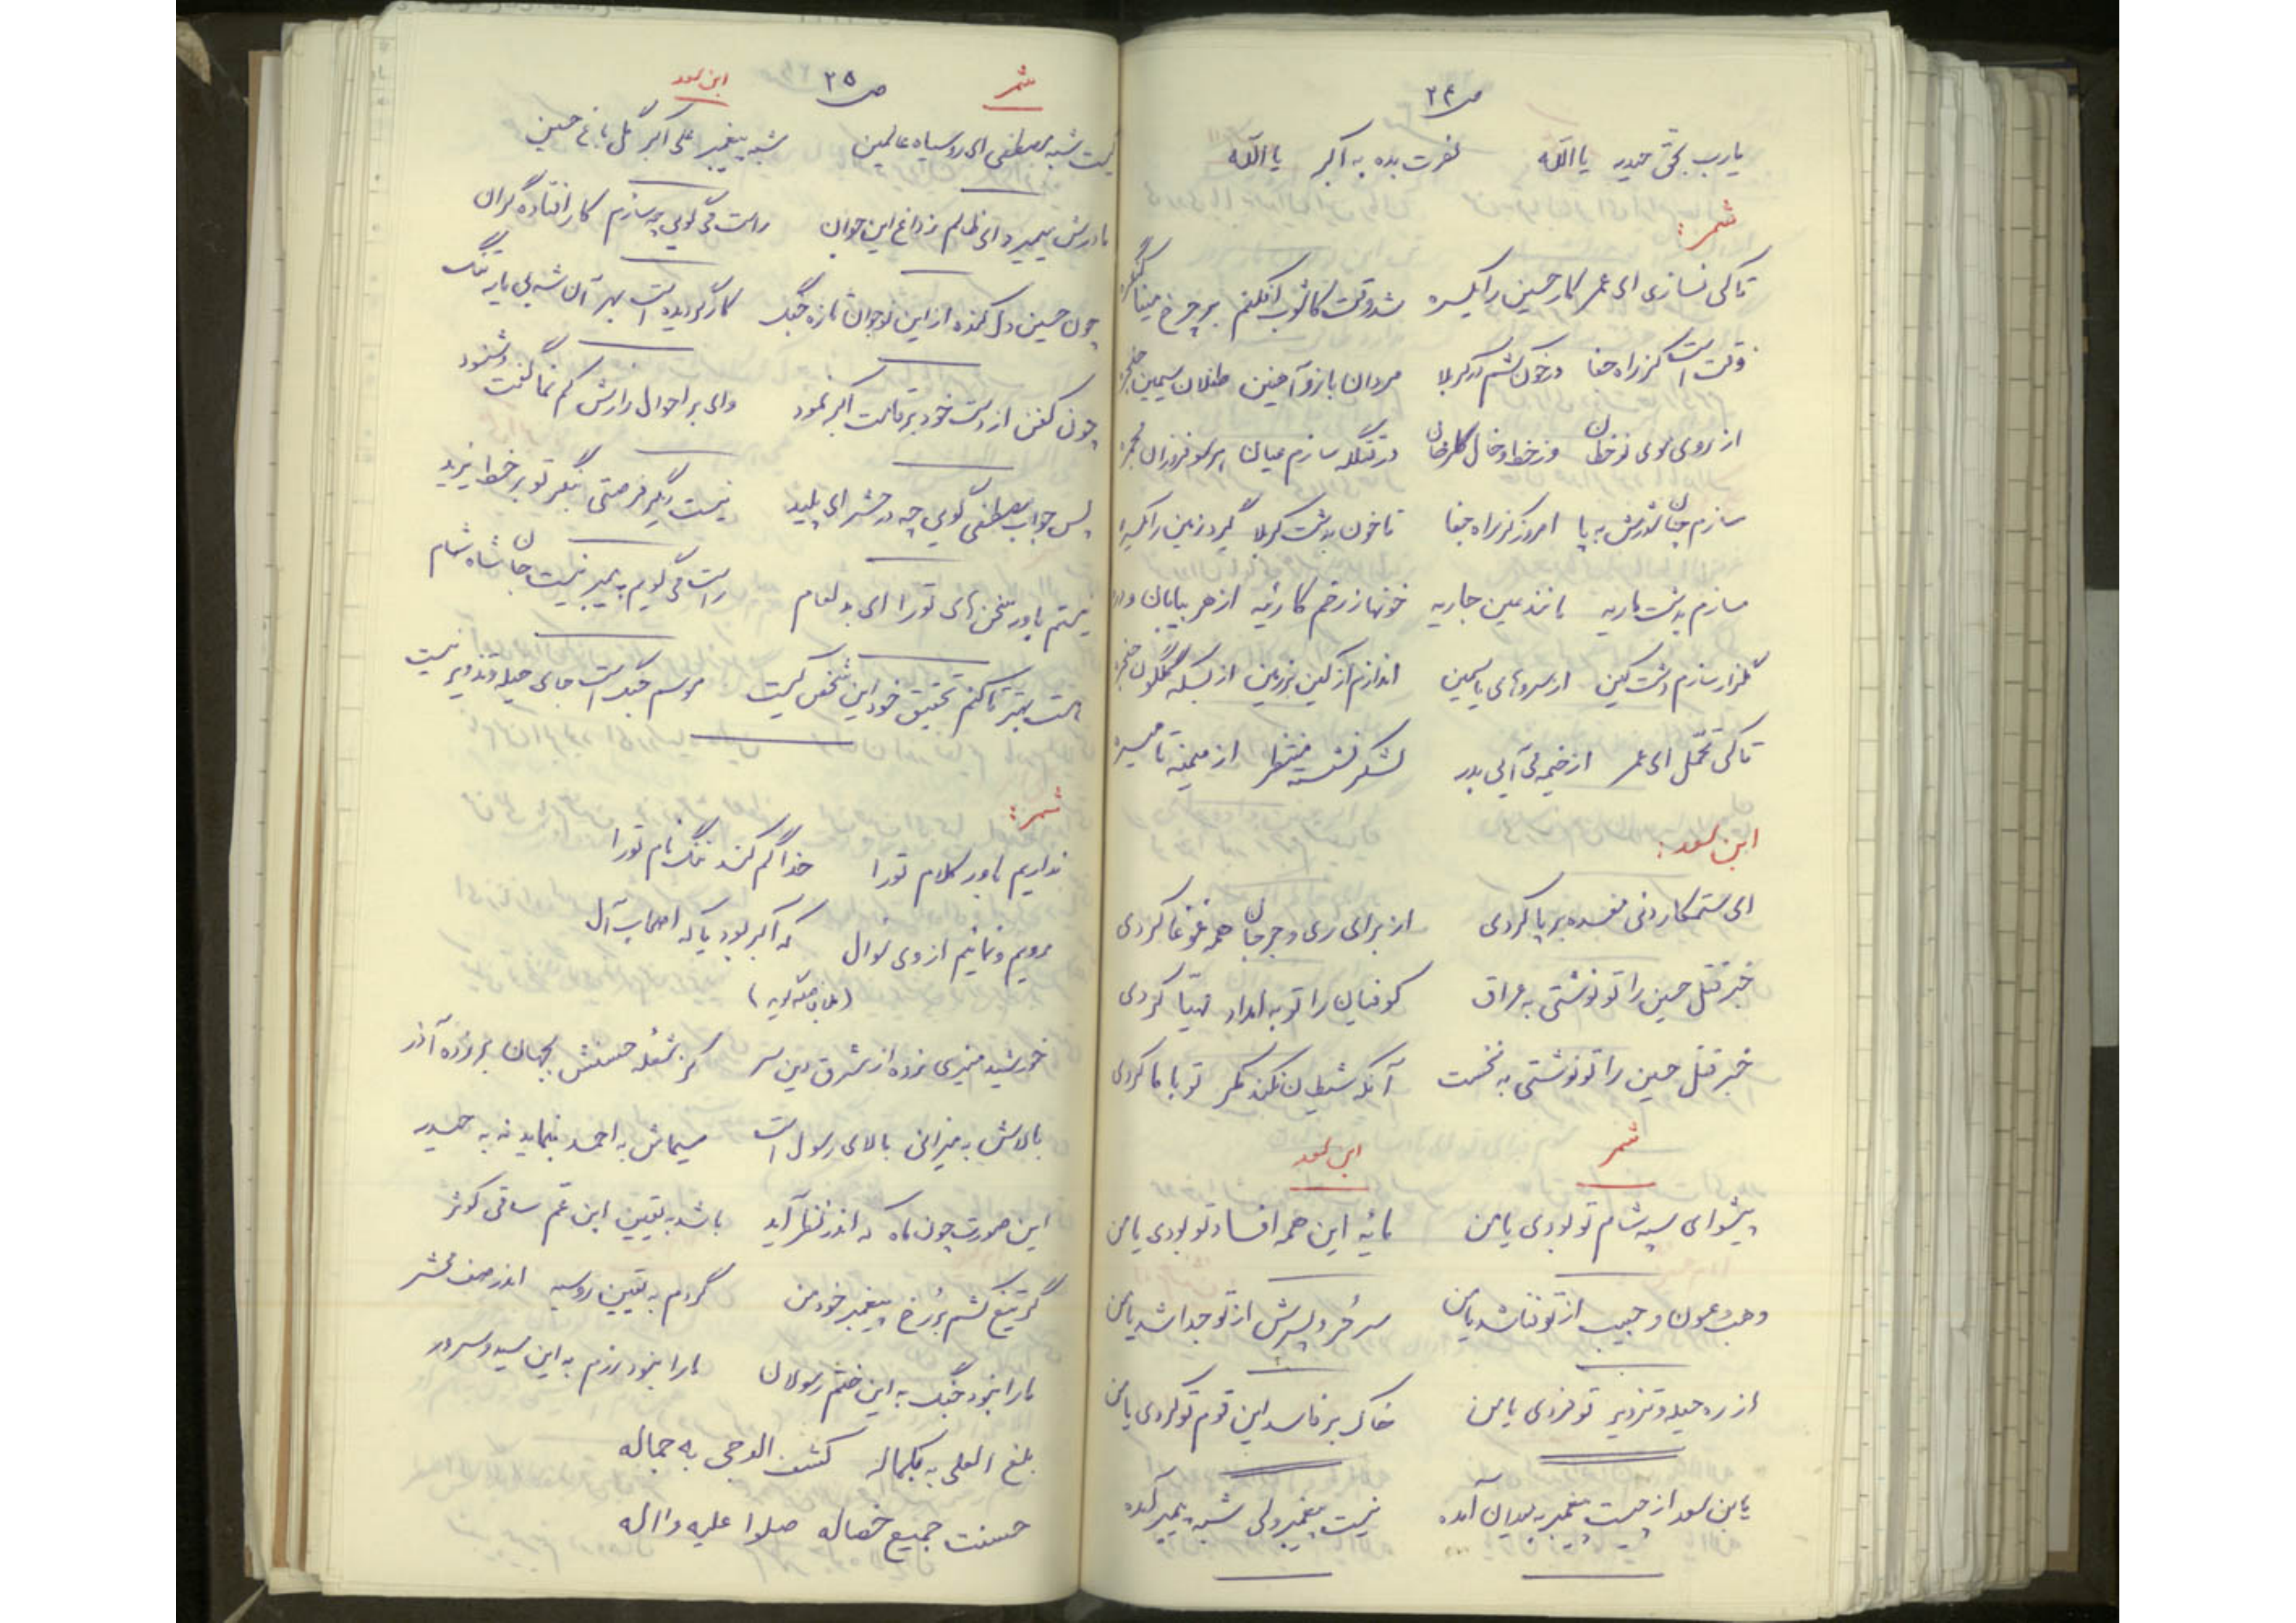 ص ۲۴
یارب بحق حیدر یا الله نصرت بده به اکبر یا الله
شمر:
تا کی نسازی ای عمر کار حسین را یکسره شد وقت کاشوب افکنم بر چرخ مینا
وقت است کز راه جفا در خون کشم در کربلا مردان بازو آهنین طفلان سیمین حنجره
از روی موی نوخطان وز خط و خال گلرخان در تنگه سازم میان پر
سازم چنان شورش به پا امروز کز راه جفا تا خون به دشت کربلا گیرد زمین را یکسره
سازم به دشت ماریه مانند عین جاریه خونها ز زخم کاریه از هر بیابان و دره
گلزار سازم دشت کین از سروهای یاسمین اندازم از کین بر زمین از بسکه گلگون حنجره
تا کی تحمل ای عمر از خیمه کی آیی بدر لشکر نشسته منتظر از میمنه تا میسره
ابن سعد:
ای ستمکار دنی مفسده بر پا کردی از برای ری و جرجان همه غوغا کردی
خبر قتل حسین را تو نوشتی به عراق کوفیان را تو به امداد مهیا کردی
خبر قتل حسین را تو نوشتی به نخست آنکه شیطان نکند مکر تو با ما کردی
شمر ابن سعد
پیشوای سپه شام تو بودی یا من مایه این همه افساد تو بودی یا من
وهب و عون و حبیب از تو فنا شد یا من سر حر و پسرش از تو جدا شد یا من
از ره حیله و تزویر تو کردی یا من خاک بر فاسد این قوم تو کردی یا من
یابن سعد از چیست پیغمبر به میدان آمده نیست پیغمبر ولی شبه پیمبر آمده
ص ۲۵
شمر ابن سعد
کیست شبه مصطفی ای روسیاه عالمین شبه پیغمبر علی اکبر گل باغ حسین
مادرش میمیرد ای ظالم ز داغ این جوان راست می گویی چه سازم کار افتاده گران
چون حسین دل کنده از این نوجوان تازه جنگ کار گردیده است بهر آن شه بی یار تنگ
چون کفن از دست خود بر قامت اکبر نمود وای بر احوال زارش کم نما گفت و شنود
پس جواب مصطفی گویی چه در محشر ای پلید نیست دیگر فرصتی بنگر تو بر خط یزید
نیستم باور سخن های تو را ای بد لعام راست می گویم پیمبر نیست جان شاه شام
هست بهتر تا کنم تحقیق خود این شخص کیست موسم جنگ است جای حیله و تزویر نیست
شمر:
نداریم باور کلام تو را خدا گم کند ننگ نام تو را
رویم و نمائیم از وی سوال که اکبر بود یا که اصحاب آل
خورشید منیری زده از مشرق دین سر کز شعله حسنش بجهان بر زده آذر
بالاش به میزانی بالای رسول است سیماش به احمد بنماید نه به حیدر
این صورت چون ماه که اندر نظر آید باشد به یقین ابن عم ساقی کوثر
گر تیغ کشم بر رخ پیغمبر خود من گردم به یقین روسیه اندر صف محشر
ما را نبود جنگ به این ختم رسولان ما را نبود رزم به این سید و سرور
بلغ العلی به بکماله کشف الدجی به جماله
حسنت جمیع خصاله صلوا علیه و اله